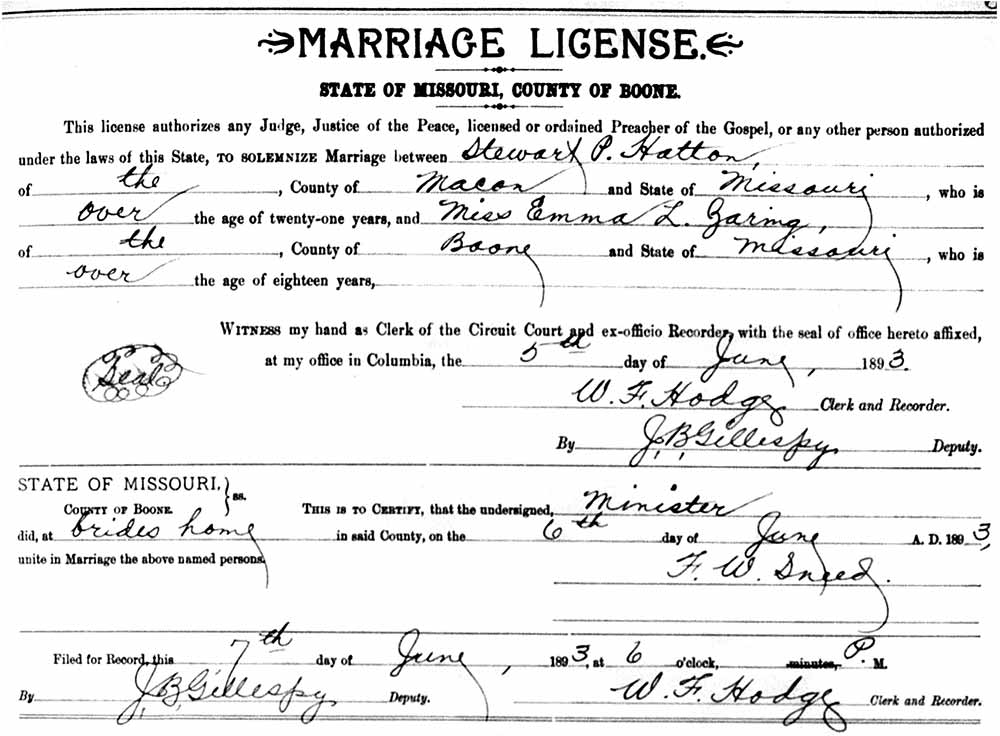 MARRIAGE LICENSE.
STATE OF MISSOURI, COUNTY OF BOONE.
This license authorizes any Judge, Justice of the Peace, licensed or ordained Preacher of the Gospel, or any other person authorized
under the laws of this State, TO SOLEMNIZE Marriage between Stewart P. Hatton,
of the , County of Macon and State of Missouri , who is
over the age of twenty-one years, and Miss Emma L. Garing,
of the , County of Boone and State of Missouri , who is
over the age of eighteen years,
WITNESS my hand as Clerk of the Circuit Court and ex-officio Recorder, with the seal of office hereto affixed,
at my office in Columbia, the 5th day of June, 1893.
Seal
W. F. Hodge Clerk and Recorder.
By J. B. Gillespy Deputy.
STATE OF MISSOURI, } ss.
COUNTY OF BOONE. THIS IS TO CERTIFY, that the undersigned, Minister
did, at brides home in said County, on the 6th day of June A. D. 1893,
unite in Marriage the above named persons. F. W. Sneed.
Filed for Record, this 7th day of June, 1893, at 6 o'clock, minutes, P. M.
By J. B. Gillespy Deputy. W. F. Hodge Clerk and Recorder.